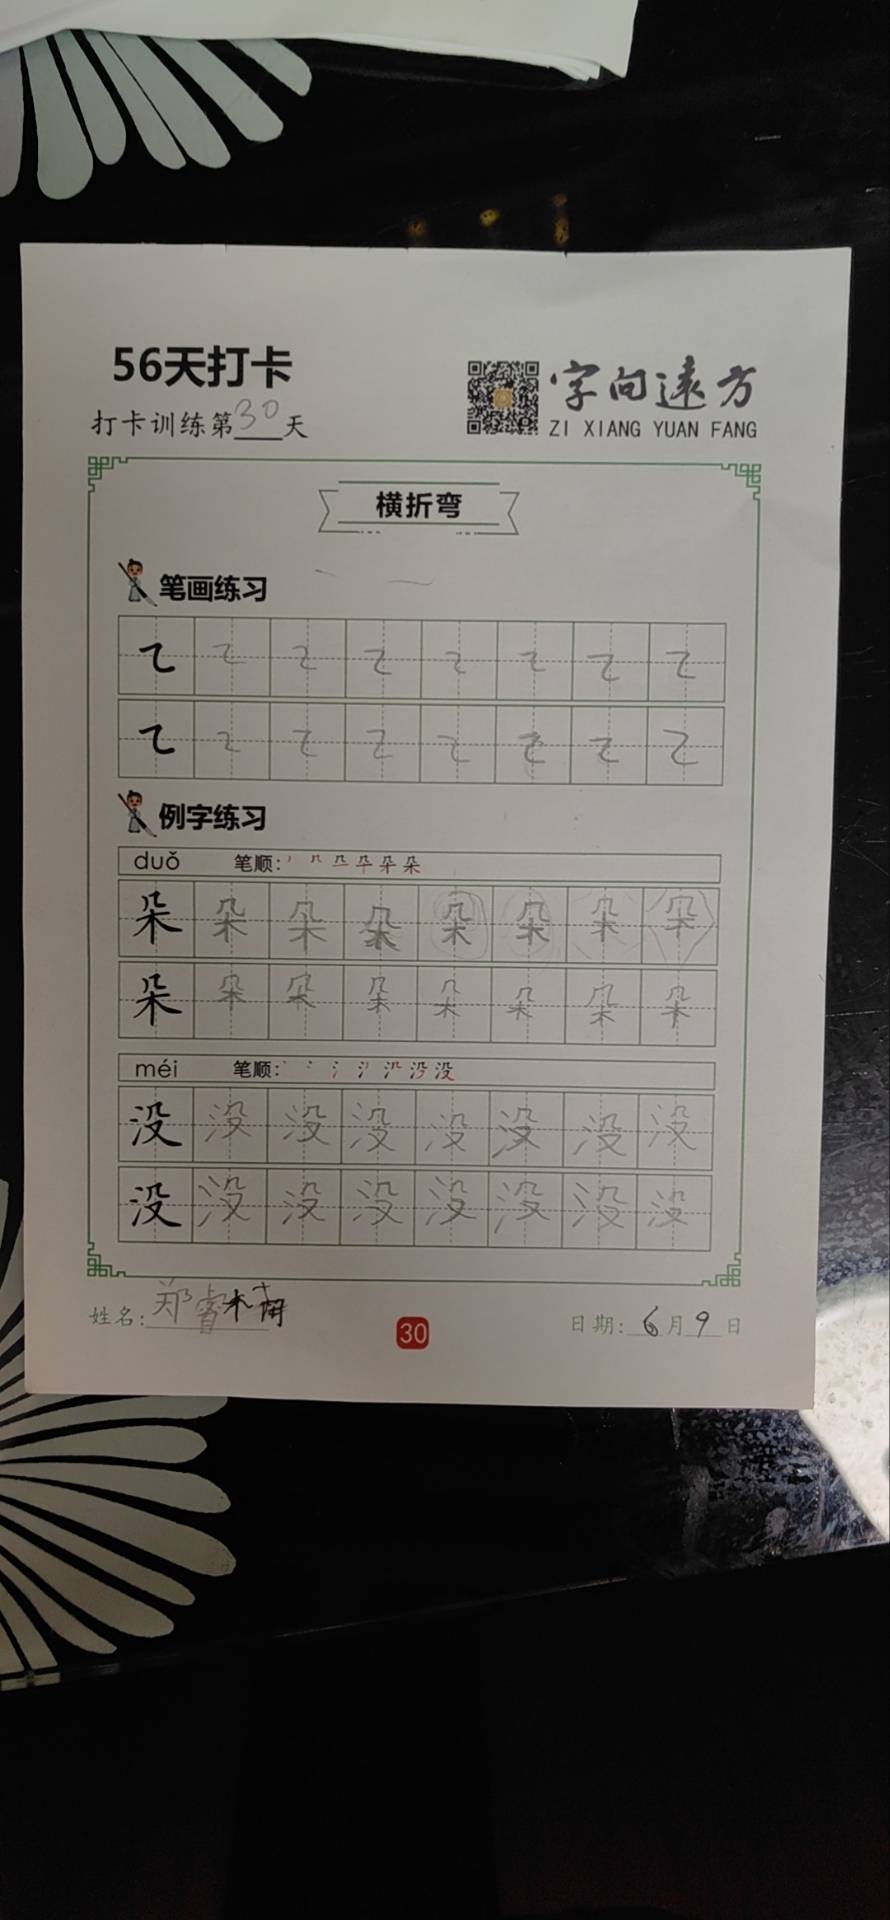 56天打卡
打卡训练第30天
字向远方
ZI XIANG YUAN FANG
横折弯
笔画练习
㇍ ㇍ ㇍ ㇍ ㇍ ㇍ ㇍ ㇍
㇍ ㇍ ㇍ ㇍ ㇍ ㇍ ㇍ ㇍
例字练习
duǒ 笔顺:
朵 朵 朵 朵 朵 朵 朵 朵
朵 朵 朵 朵 朵 朵 朵 朵
méi 笔顺:
没 没 没 没 没 没 没 没
没 没 没 没 没 没 没 没
姓名:郑睿楠
30
日期:6月9日